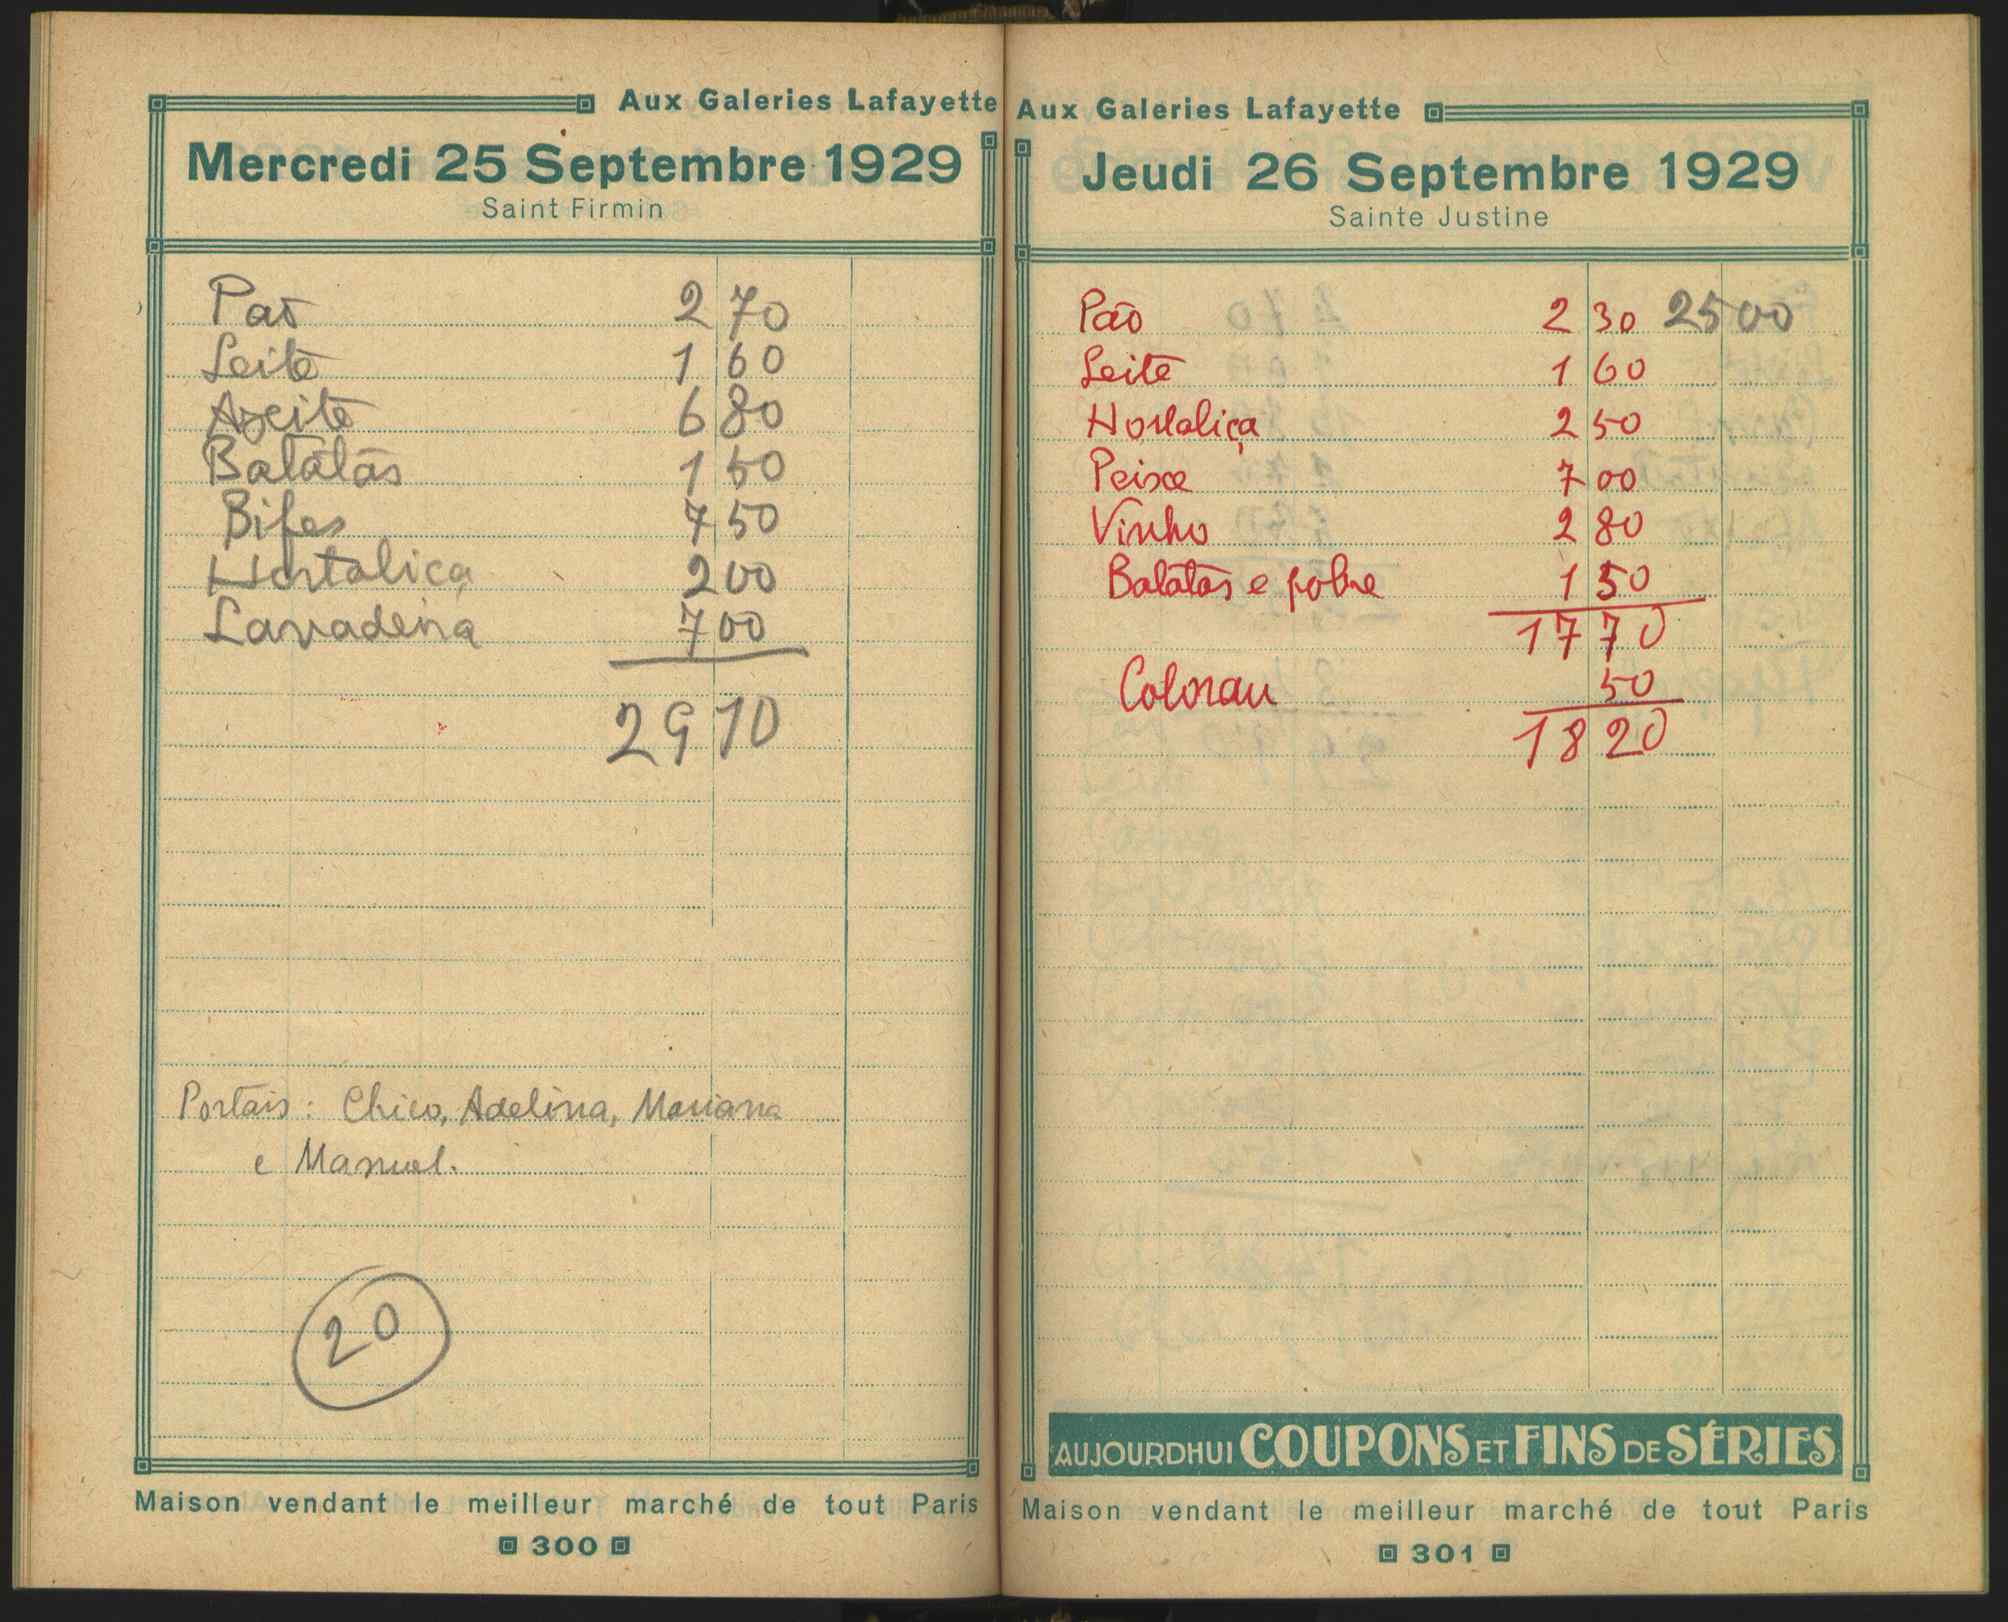 Aux Galeries Lafayette
Mercredi 25 Septembre 1929
Saint Firmin
Pão 2 70
Leite 1 60
Azeite 6 80
Batatas 1 50
Bifes 7 50
Hortaliça 2 00
Lavadeira 7 00
29 10
Portais: Chico, Adelina, Mariana
e Manuel.
20
Maison vendant le meilleur marché de tout Paris
300
Aux Galeries Lafayette
Jeudi 26 Septembre 1929
Sainte Justine
Pão 2 30 25 00
Leite 1 60
Hortaliça 2 50
Peixe 7 00
Vinho 2 80
Batatas e pobre 1 50
17 70
Colorau 50
18 20
AUJOURDHUI COUPONS ET FINS DE SÉRIES
Maison vendant le meilleur marché de tout Paris
301